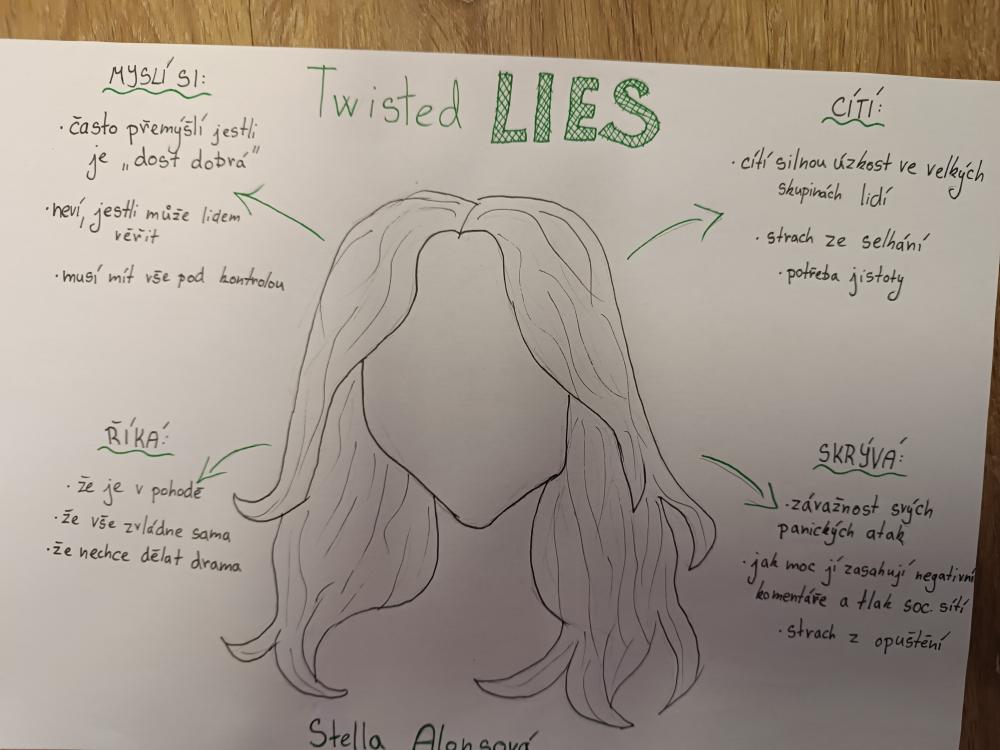 Twisted LIES
MYSLÍ SI:
· často přemýšlí jestli
je „dost dobrá"
· neví, jestli může lidem
věřit
· musí mít vše pod kontrolou
CÍTÍ:
· cítí silnou úzkost ve velkých
skupinách lidí
· strach ze selhání
· potřeba jistoty
ŘÍKÁ:
· že je v pohodě
· že vše zvládne sama
· že nechce dělat drama
SKRÝVÁ:
· závažnost svých
panických atak
· jak moc jí zasahují negativní
komentáře a tlak soc. sítí
· strach z opuštění
Stella Alonsová